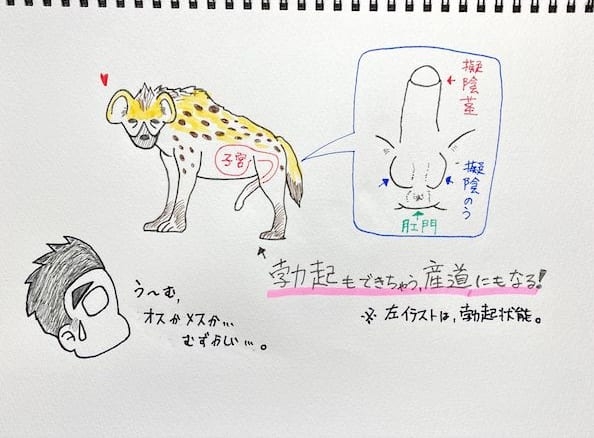 擬陰茎
子宮
擬陰のう
肛門
勃起もできちゃう,産道にもなる!
※ 左イラストは,勃起状態。
う〜む,
オスかメスか…
むずかしい…。